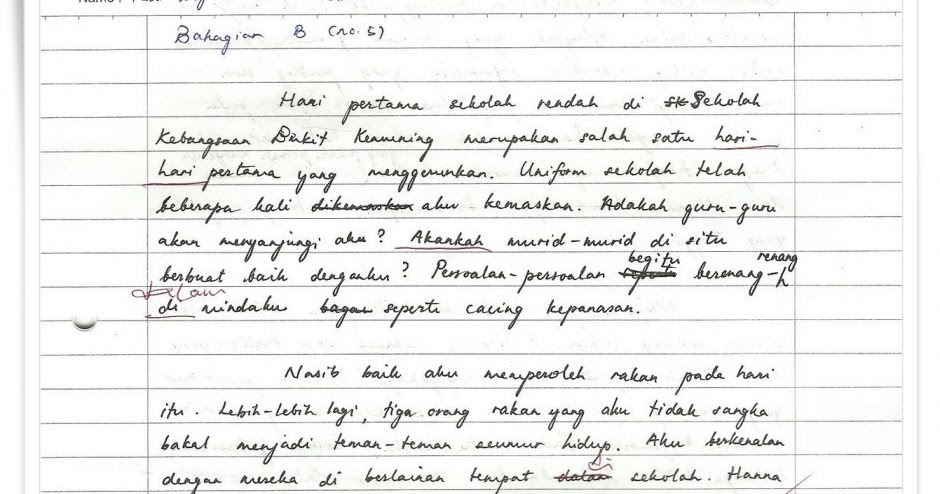 Bahagian B (no. 5)
Hari pertama sekolah rendah di Sekolah
Kebangsaan Bukit Kemuning merupakan salah satu hari-
hari pertama yang menggerunkan. Uniform sekolah telah
beberapa kali dikemaskan aku kemaskan. Adakah guru-guru
akan menyanjungi aku? Akankah murid-murid di situ
begitu renang
berbuat baik denganku? Persoalan-persoalan seperti berenang-
dalam
di mindaku bagai seperti cacing kepanasan.
Nasib baik aku memperoleh rakan pada hari
itu. Lebih-lebih lagi, tiga orang rakan yang aku tidak sangka
bakal menjadi teman-teman seumur hidup. Aku berkenalan
di
dengan mereka di berlainan tempat dalam sekolah. Hanna